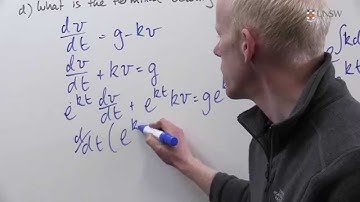 d) What is the terminal velocity
UNSW
dv/dt = g - kv
dv/dt + kv = g
e^{kt} dv/dt + e^{kt} kv = ge
d/dt (e^k
∫kd
e